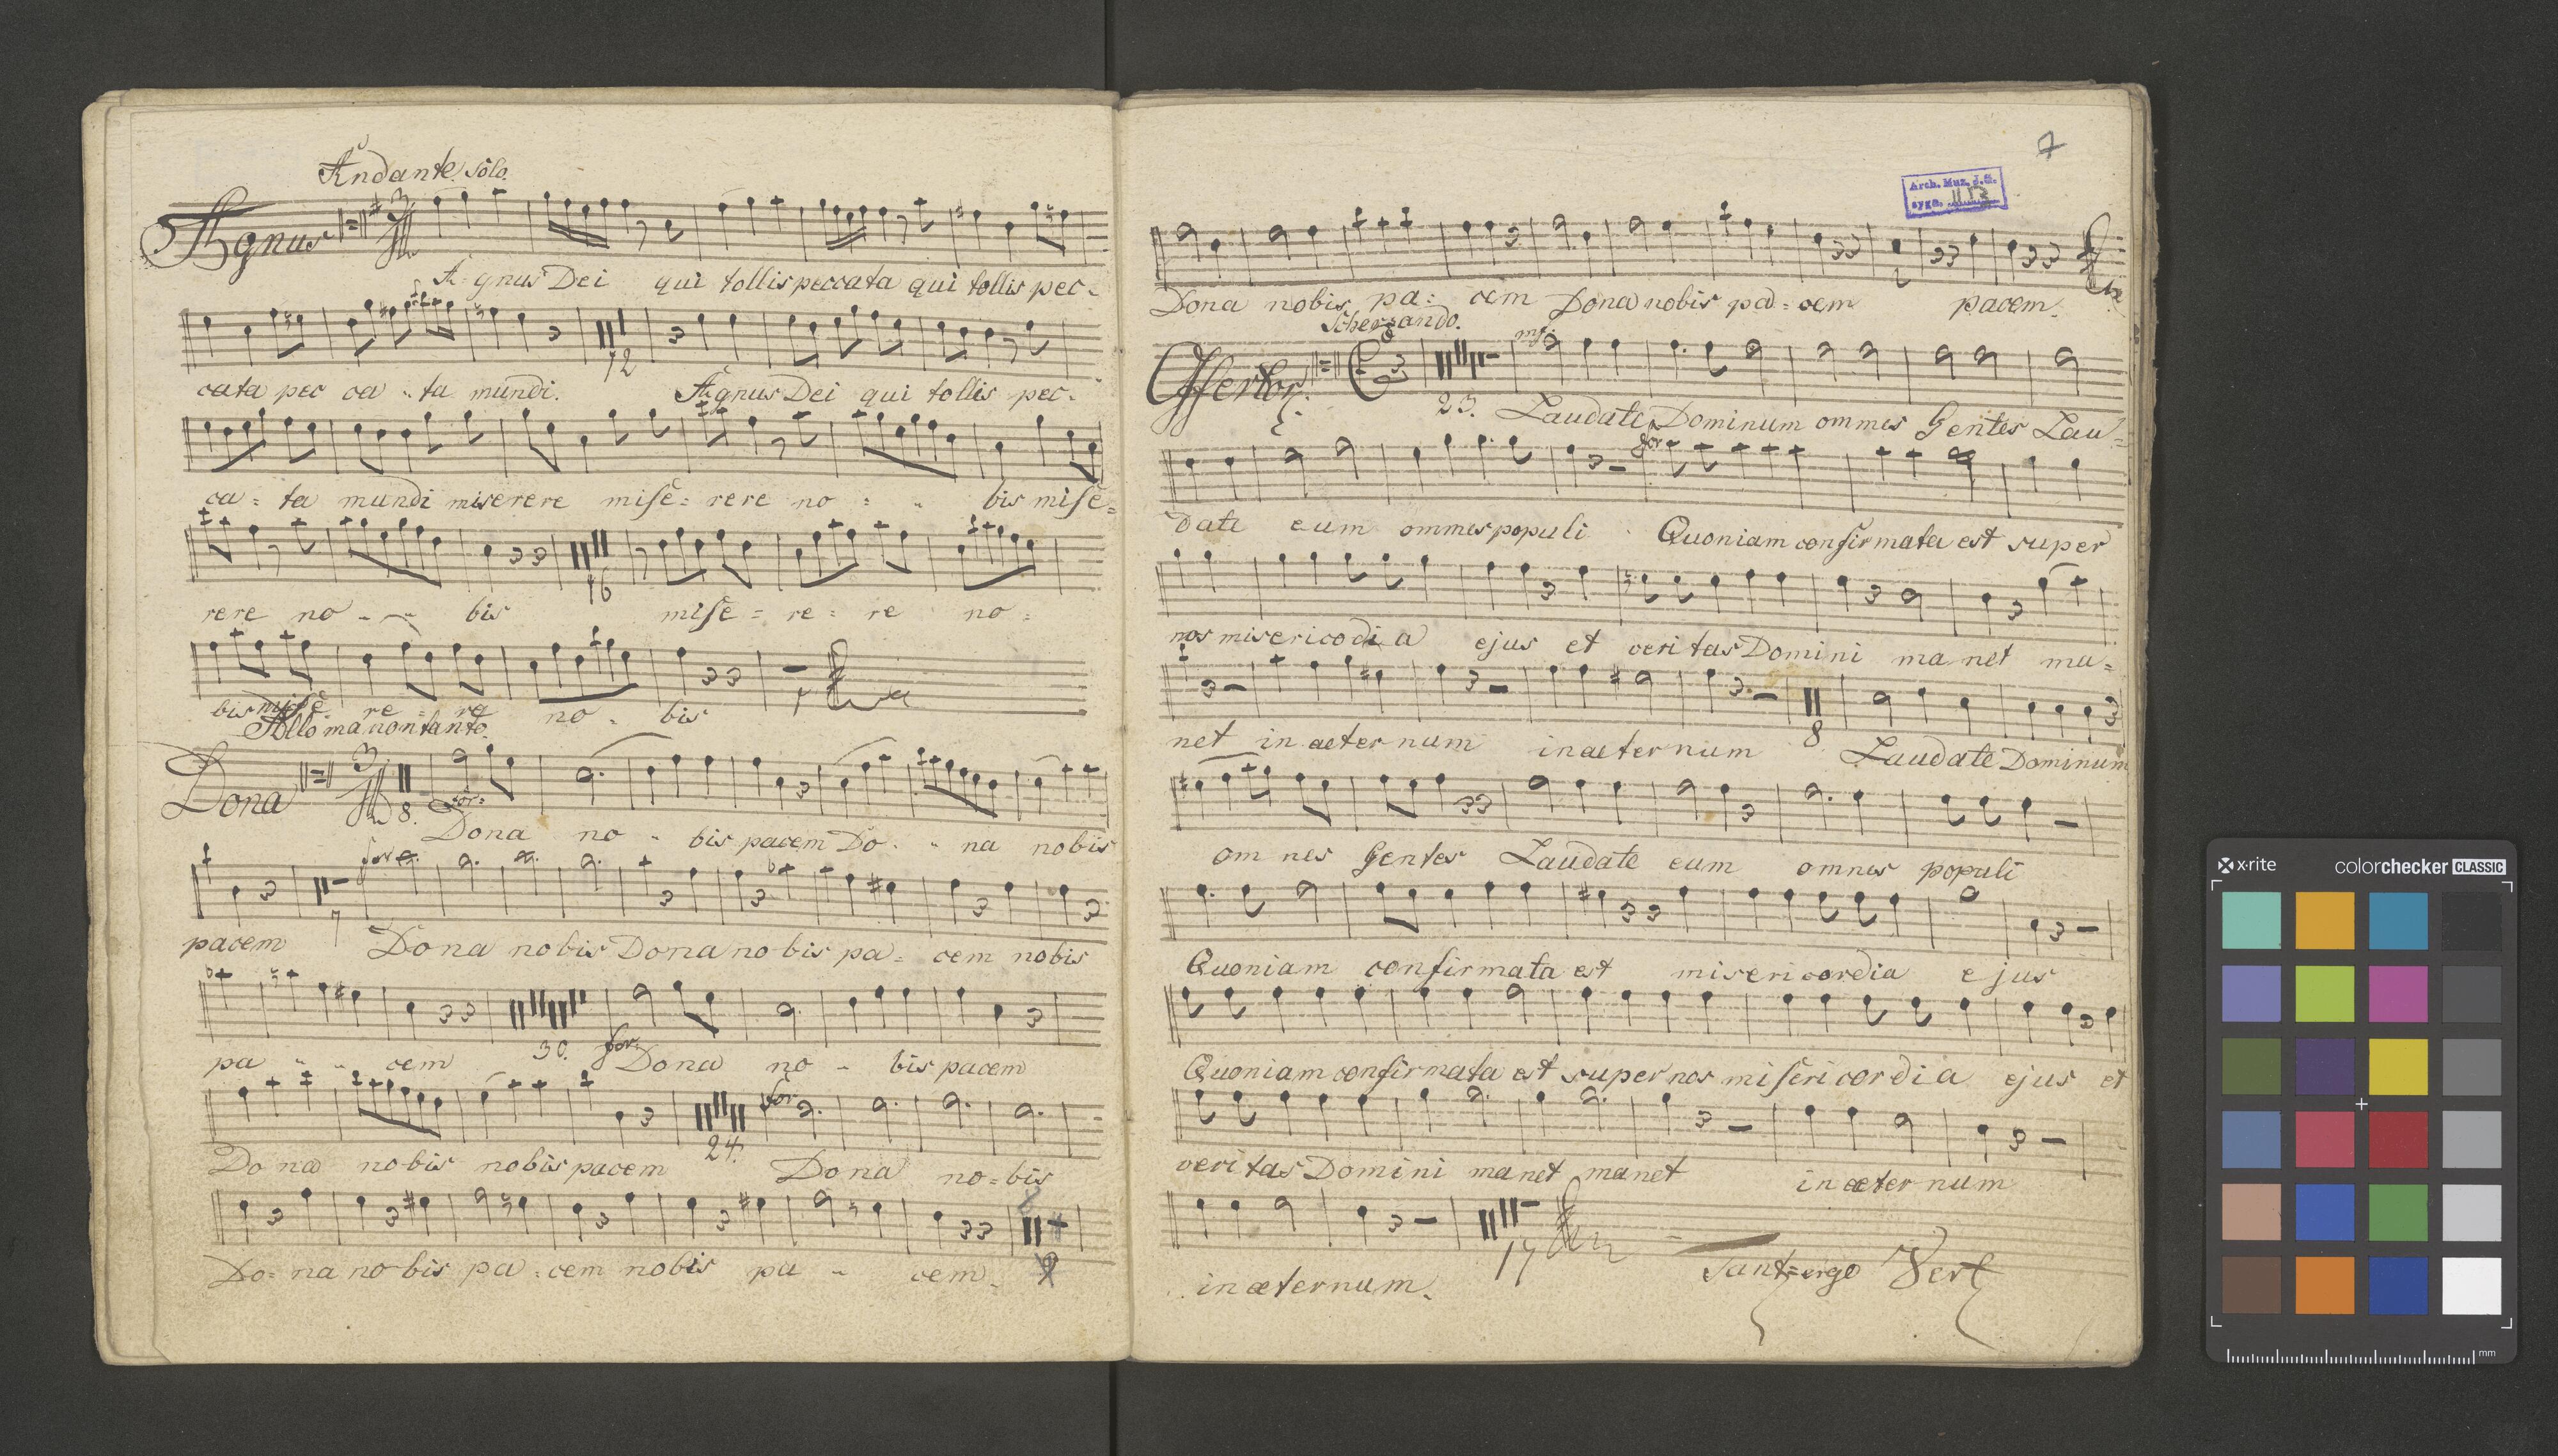 Andante. Solo.
Agnus
A-gnus Dei qui tollis peccata qui tollis pec-
12
cata pec ca - ta mundi. Agnus Dei qui tollis pec-
ca = ta mundi miserere mise = rere no = - bis mise=
16
rere no - - bis mise = re = re no =
1
bis mise re - re no - bis
Allo ma non tanto.
Dona 3 8. for:
Dona no - bis pacem Do - - na nobis
for
7
pacem Dona nobis Dona nobis pa = cem nobis
30. for
pa - - cem Dona no - bis pacem
24. for
Dona nobis nobis pacem Dona no = bis
Do = na no bis pa - cem nobis pa - cem. 9
7
Arch. Muz. J.G.
sygn. II 13
Dona nobis pa = cem Dona nobis pa = cem pacem.
Scherzando.
Offertor: mf:
23. Laudate Dominum ommes Gentes Lau=
for
date eum ommes populi Quoniam confirmata est super
nos misericodi a ejus et veri tas Domini ma net ma=
8
net in aeter num in aeter num Laudate Dominum
om nes Gentes Laudate eum omnes populi
Quoniam confirmata est misericordia e jus
Quoniam confirmata est super nos misericordia ejus et
veritas Domini manet manet in aeter num
17
in aeternum. Tant=ergo Vert
x·rite colorchecker CLASSIC
mm